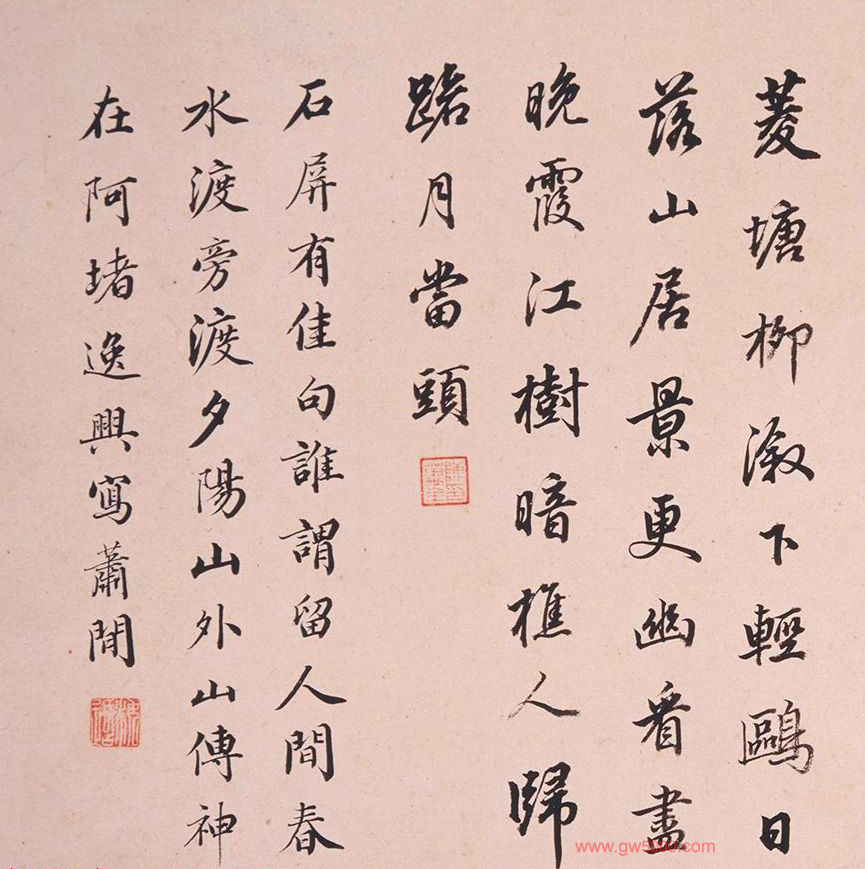 菱塘柳漵下輕鷗日
落山居景更幽看盡
晚霞江樹暗樵人歸
踏月當頭
石屏有佳句誰謂留人間春
水渡旁渡夕陽山外山傳神
在阿堵逸興寫蕭閒